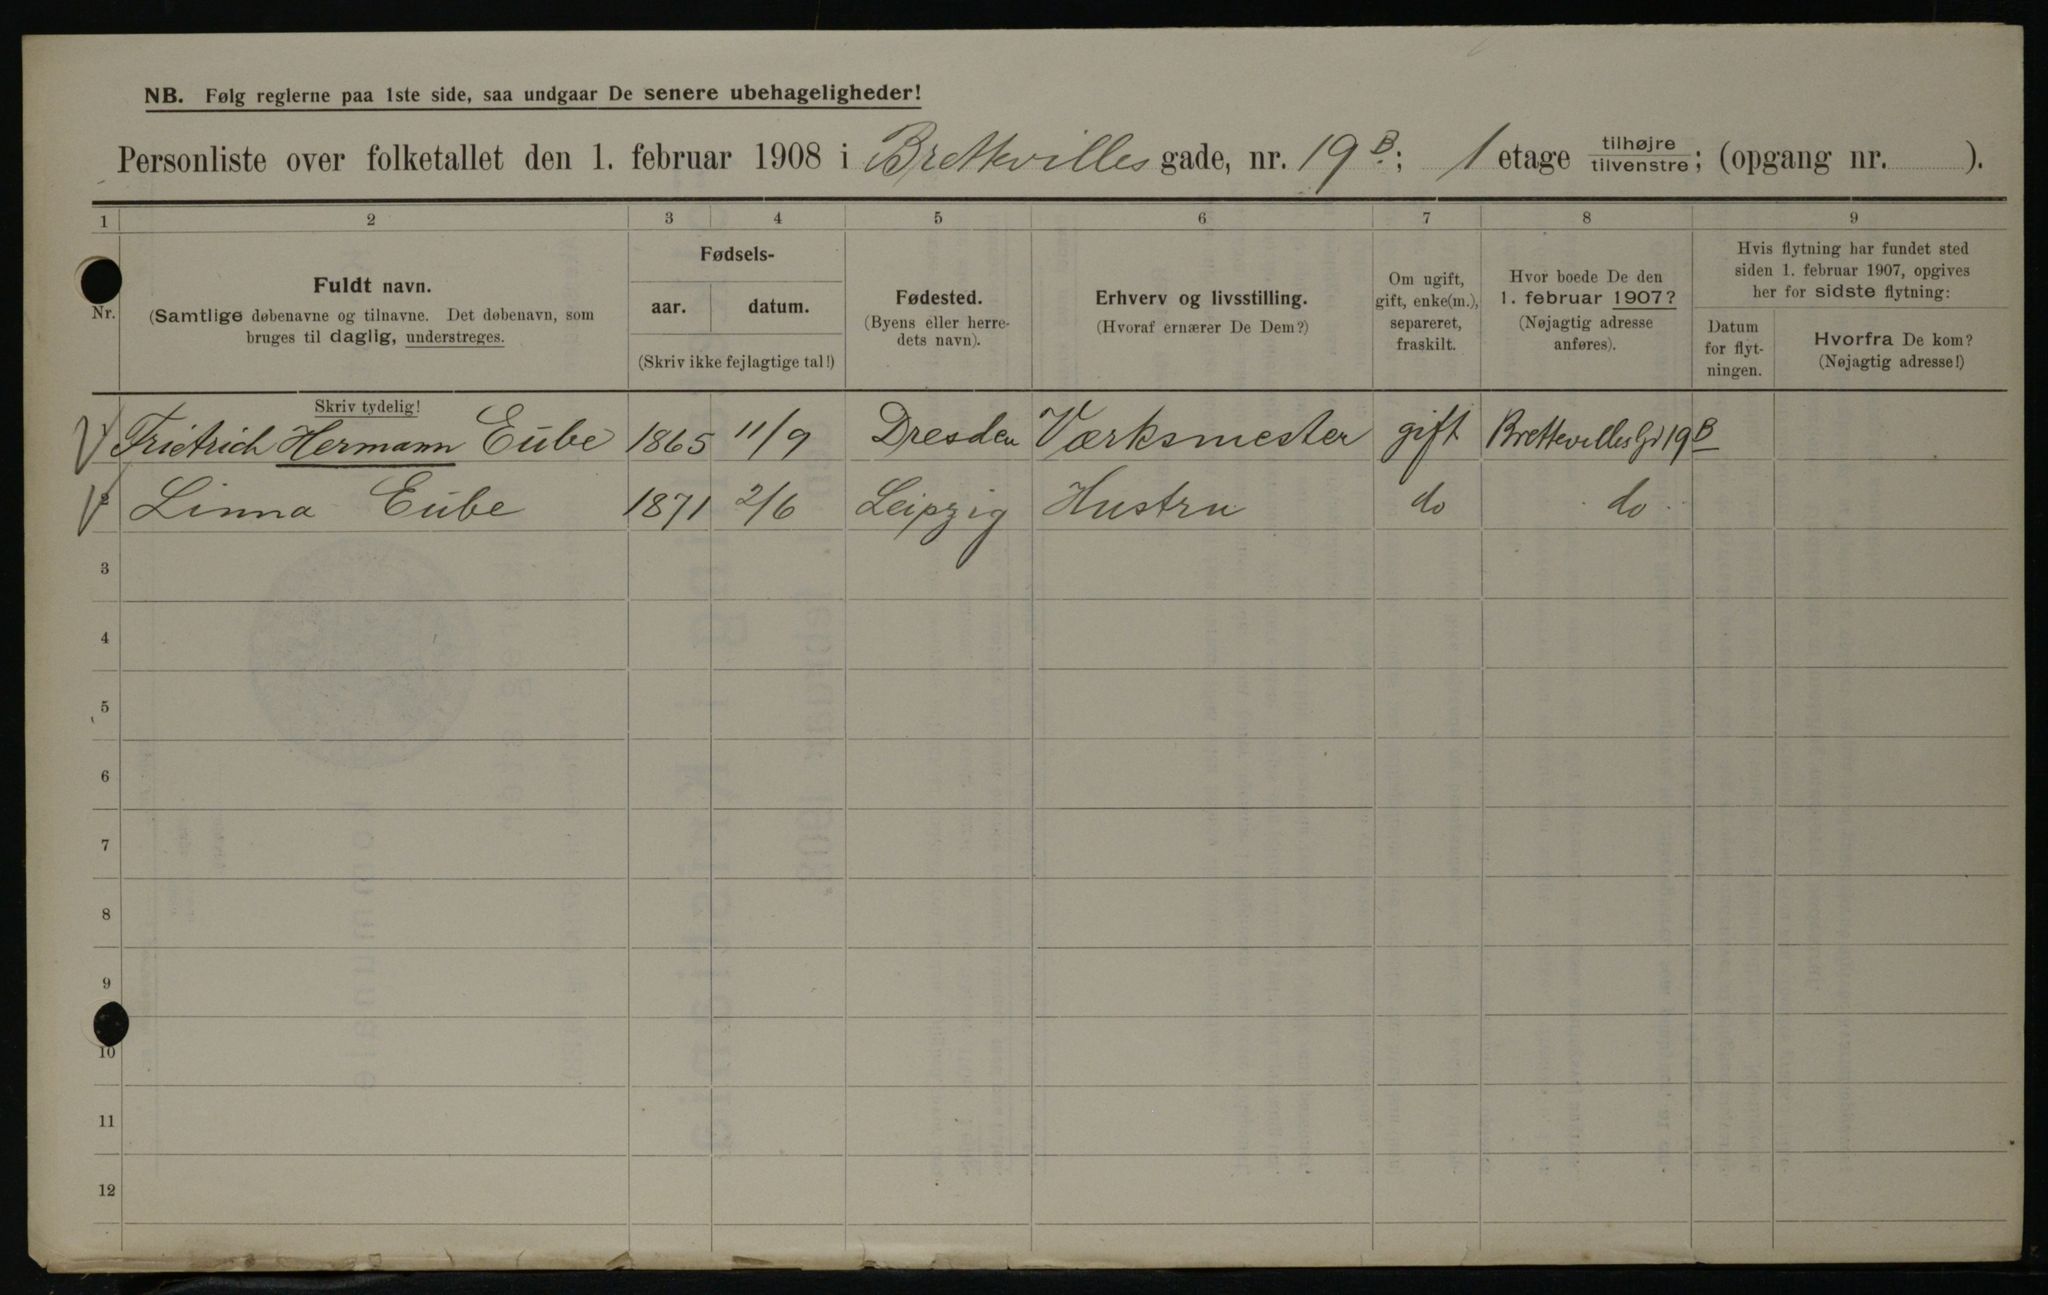 NB. Følg reglerne paa 1ste side, saa undgaar De senere ubehageligheder!
Personliste over folketallet den 1. februar 1908 i Brettevilles gade, nr. 19 B.; 1 etage tilhøjre / tilvenstre; (opgang nr. ).
1 2 3 4 5 6 7 8 9
Nr.
Fuldt navn.
(Samtlige døbenavne og tilnavne. Det døbenavn, som
bruges til daglig, understreges.
Skriv tydelig!
Fødsels-
aar. datum.
(Skriv ikke fejlagtige tal!)
Fødested.
(Byens eller herre-
dets navn).
Erhverv og livsstilling.
(Hvoraf ernærer De Dem?)
Om ugift,
gift, enke(m.),
separeret,
fraskilt.
Hvor boede De den
1. februar 1907?
(Nøjagtig adresse
anføres).
Hvis flytning har fundet sted
siden 1. februar 1907, opgives
her for sidste flytning:
Datum
for flyt-
ningen.
Hvorfra De kom?
(Nøjagtig adresse!)
Frietrich Hermann Eube 1865 11/9 Dresden Værksmester gift Brettevilles Gd 19 B
2 Linna Eube 1871 2/6 Leipzig Hustru do do
3
4
5
6
7
8
9
10
11
12